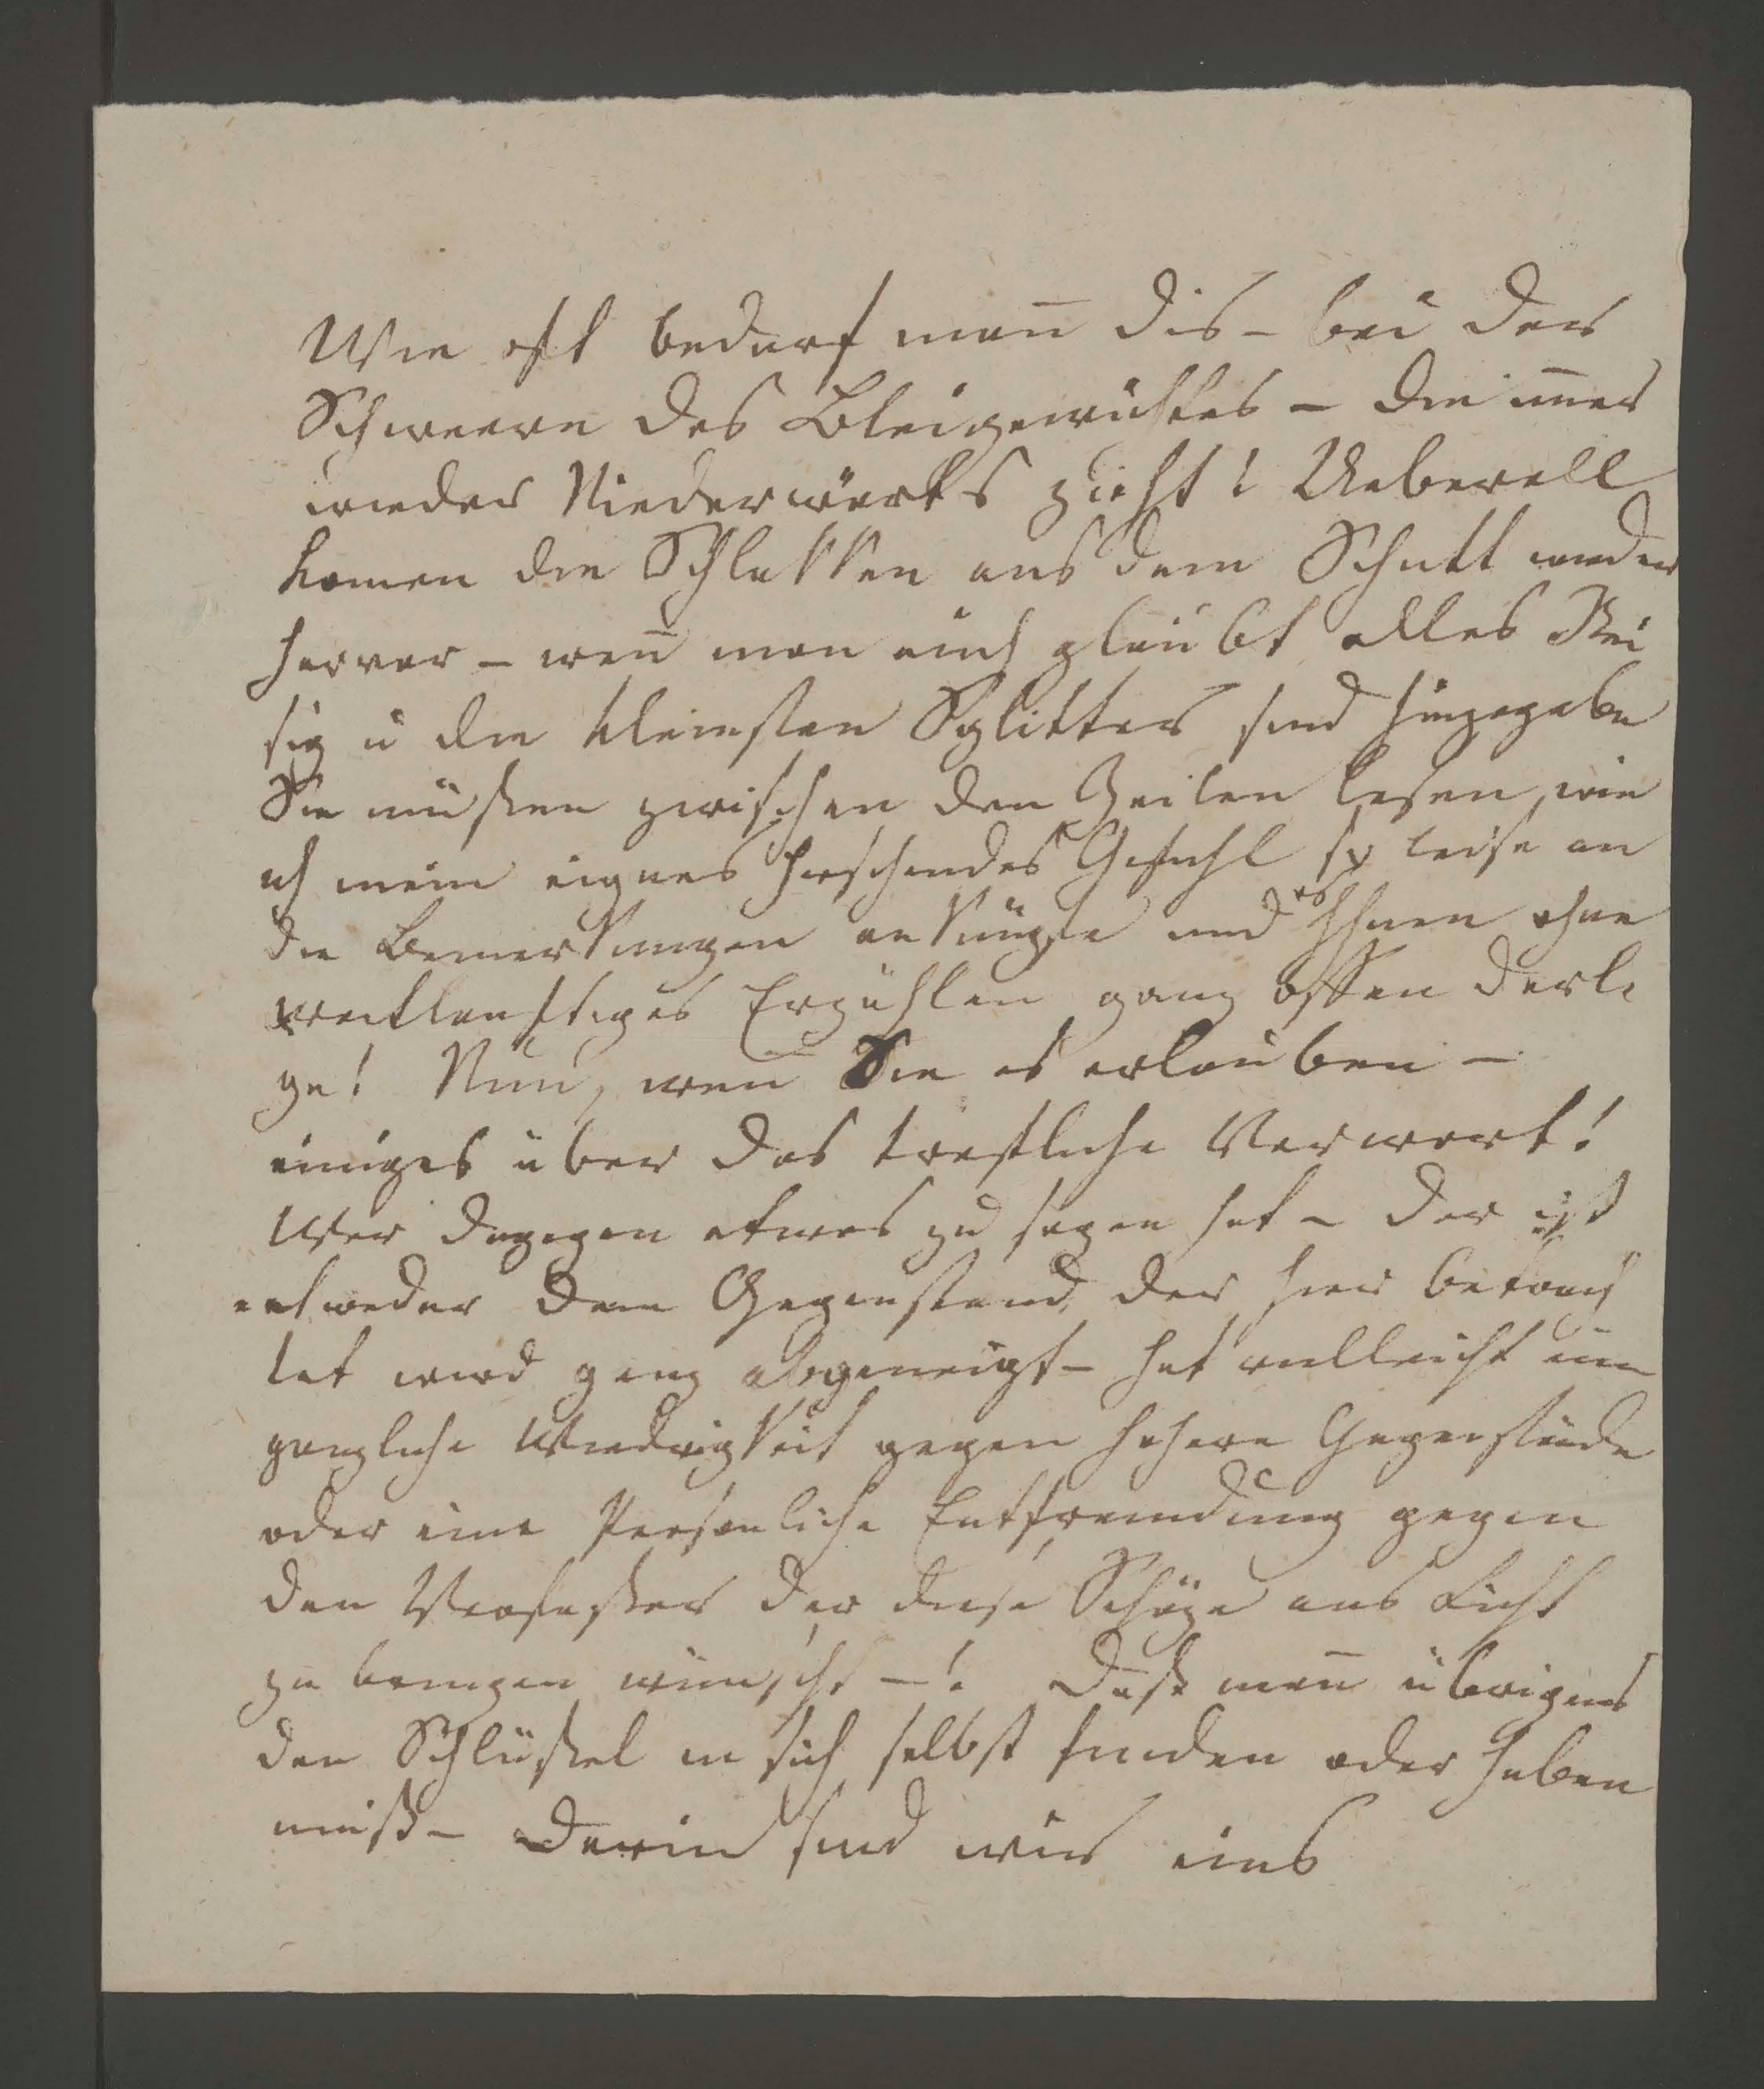 Wie oft bedarf man̄ dis – bei der
Schweere des Bleigewichtes – die im̄er
wieder Niederwärts zieht! Ueberall
kom̄en die Schlakken aus dem Schutt wieder
hervor – wen̄ man auch glaubt alles Rei
sig u die kleinsten Splitter sind hingegebe
Sie müßen zwischen den Zeilen lesen, wie
ich mein eignes Gefühl so leise an
die Bemerkungen anknüpfe und es Ihnen ohne
weitläuftiges Erzählen ganz offen darle
ge! Nun, wen̄ Sie es erlauben –
einiges über das trefliche Vorwort!
Wer dagegen etwas zu sagen hat – der ist
entweder dem Gegenstand, der hier betrach
tet wird ganz abgeneigt – hat vielleicht eine
gänzliche Wiedrigkeit gegen höhere Gegenstände
oder eine Persönliche Entfremdung gegen
den Verfaßer der diese Schäze ans Licht
zu bringen wünscht –! Daß man̄ übrigens
den Schlüßel in sich selbst finden oder haben
muß – darin sind wir eins